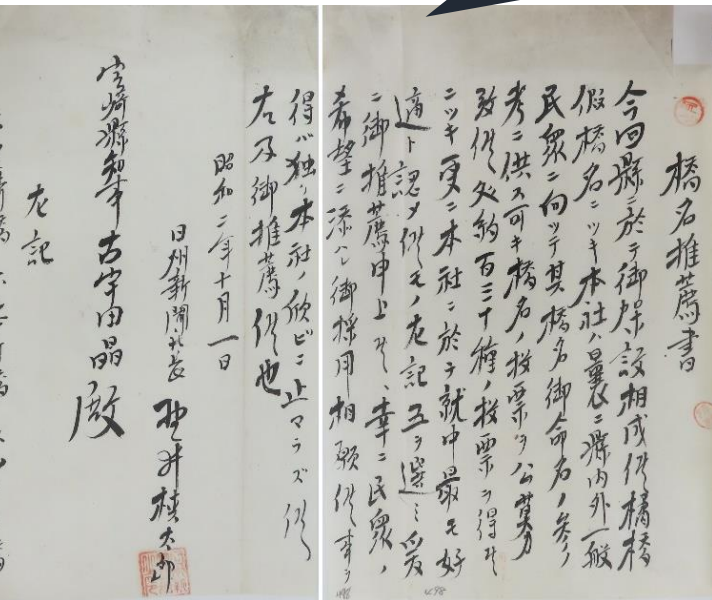 橋名推薦書
今回縣ニ於テ御架設相成候橘橋
假橋名ニツキ本社ハ曩ニ縣内外一般
民衆ニ向ツテ其橋名御命名ノ参
考ニ供ス可キ橋名ノ投票ヲ公募
致候処約百三十種ノ投票ヲ得候
ニツキ更ニ本社ニ於テ就中最モ好
適ト認メ候モノ左記五ヲ選ミ爰
ニ御推薦申上候、幸ニ民衆ノ
希望ニ添ハレ御採用相願候事ヲ
得バ独リ本社ノ欣ビニ止マラズ候
右及御推薦候也
昭和二年十月一日
日州新聞社長 井 太郎
宮崎縣知事 古宇田晶殿
左記
498